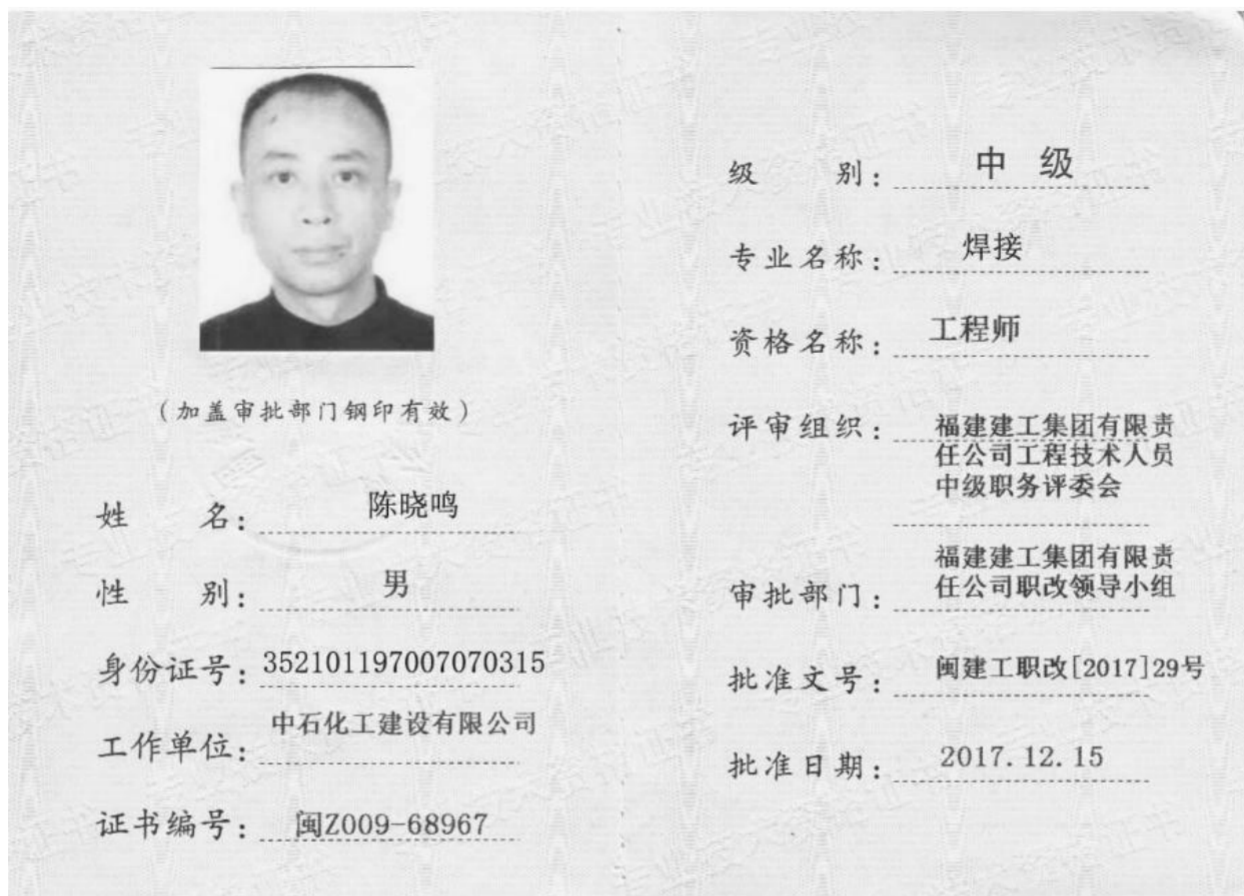 (加盖审批部门钢印有效)
姓 名: 陈晓鸣
性 别: 男
身份证号: 352101197007070315
工作单位: 中石化工建设有限公司
证书编号: 闽Z009-68967
级 别: 中 级
专业名称: 焊接
资格名称: 工程师
评审组织: 福建建工集团有限责
任公司工程技术人员
中级职务评委会
审批部门: 福建建工集团有限责
任公司职改领导小组
批准文号: 闽建工职改[2017]29号
批准日期: 2017.12.15